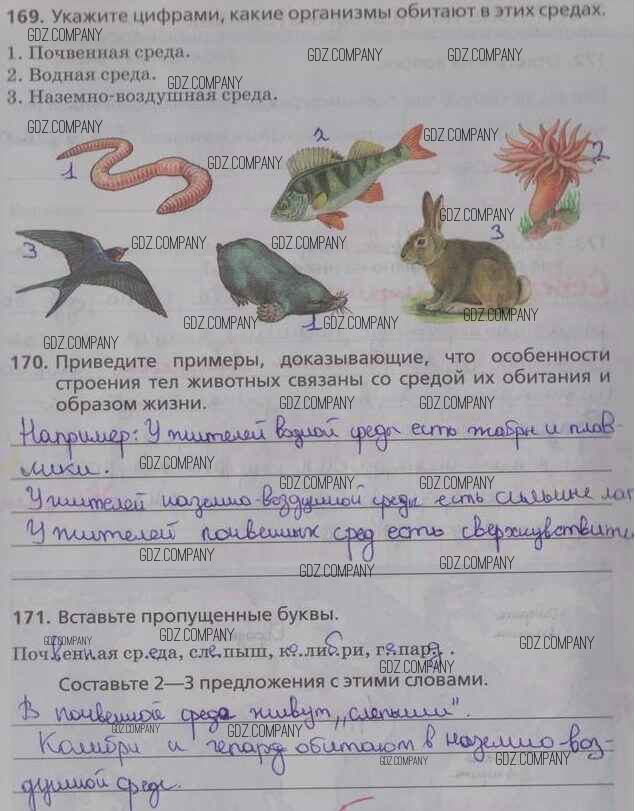 169. Укажите цифрами, какие организмы обитают в этих средах.
GDZ.COMPANY
1. Почвенная среда.
GDZ.COMPANY GDZ.COMPANY
2. Водная среда.
GDZ.COMPANY
3. Наземно-воздушная среда.
GDZ.COMPANY
2
GDZ.COMPANY
1
GDZ.COMPANY
2
GDZ.COMPANY
3
GDZ.COMPANY GDZ.COMPANY
3
GDZ.COMPANY 1 GDZ.COMPANY
GDZ.COMPANY
GDZ.COMPANY
170. Приведите примеры, доказывающие, что особенности
строения тел животных связаны со средой их обитания и
образом жизни.
GDZ.COMPANY GDZ.COMPANY
Например: У жителей водной среды есть жабры и плав-
ники.
GDZ.COMPANY
GDZ.COMPANY GDZ.COMPANY
У жителей наземно-воздушной среды есть сильные лап
GDZ.COMPANY GDZ.COMPANY
У жителей почвенных сред есть сверхчувствите
GDZ.COMPANY
GDZ.COMPANY GDZ.COMPANY
171. Вставьте пропущенные буквы.
GDZ.COMPANY GDZ.COMPANY
GDZ.COMPANY
Почвенная среда, слепыш, колибри, гепард.
GDZ.COMPANY
Составьте 2—3 предложения с этими словами.
GDZ.COMPANY GDZ.COMPANY
В почвенной среде живут „слепыши".
GDZ.COMPANY GDZ.COMPANY
Калибри и гепард обитают в наземно-воз-
GDZ.COMPANY GDZ.COMPANY GDZ.COMPANY
душной среде.